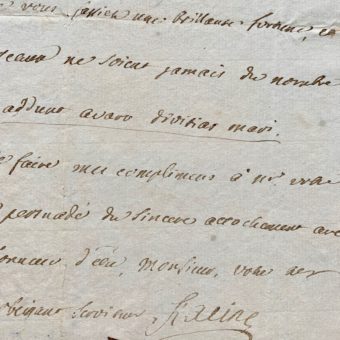 vous fassiez une brillante fortune, et
ne soient jamais du nombre
addunt avara divitias mari.
faire mes complimens à mr. votre
persuadé du sincere attachement avec
d'être, Monsieur, votre
obeissant serviteur